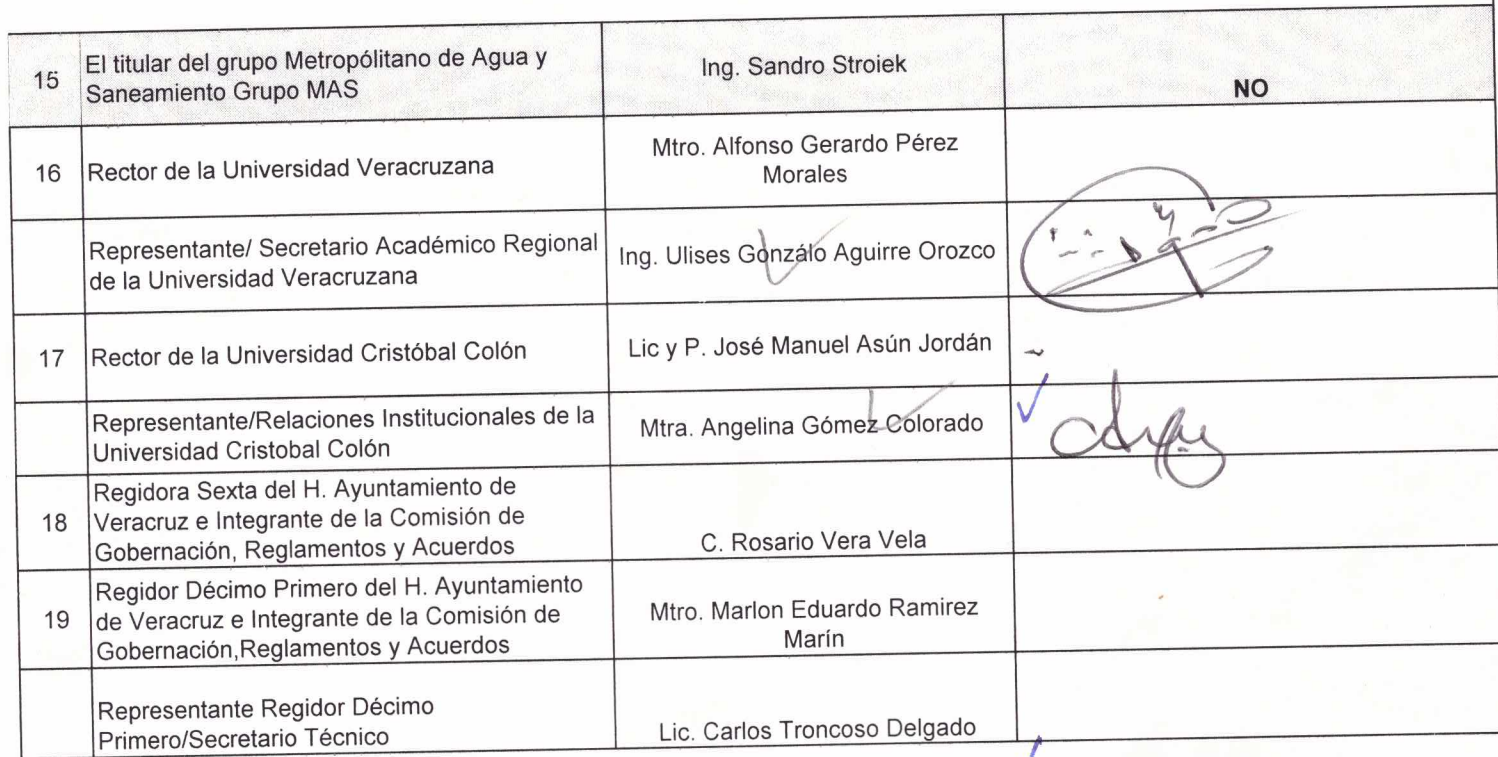 15
El titular del grupo Metropólitano de Agua y
Saneamiento Grupo MAS
Ing. Sandro Stroiek
NO
16
Rector de la Universidad Veracruzana
Mtro. Alfonso Gerardo Pérez
Morales
Representante/ Secretario Académico Regional
de la Universidad Veracruzana
Ing. Ulises Gonzálo Aguirre Orozco
17
Rector de la Universidad Cristóbal Colón
Lic y P. José Manuel Asún Jordán
Representante/Relaciones Institucionales de la
Universidad Cristobal Colón
Mtra. Angelina Gómez Colorado
18
Regidora Sexta del H. Ayuntamiento de
Veracruz e Integrante de la Comisión de
Gobernación, Reglamentos y Acuerdos
C. Rosario Vera Vela
19
Regidor Décimo Primero del H. Ayuntamiento
de Veracruz e Integrante de la Comisión de
Gobernación,Reglamentos y Acuerdos
Mtro. Marlon Eduardo Ramirez
Marín
Representante Regidor Décimo
Primero/Secretario Técnico
Lic. Carlos Troncoso Delgado